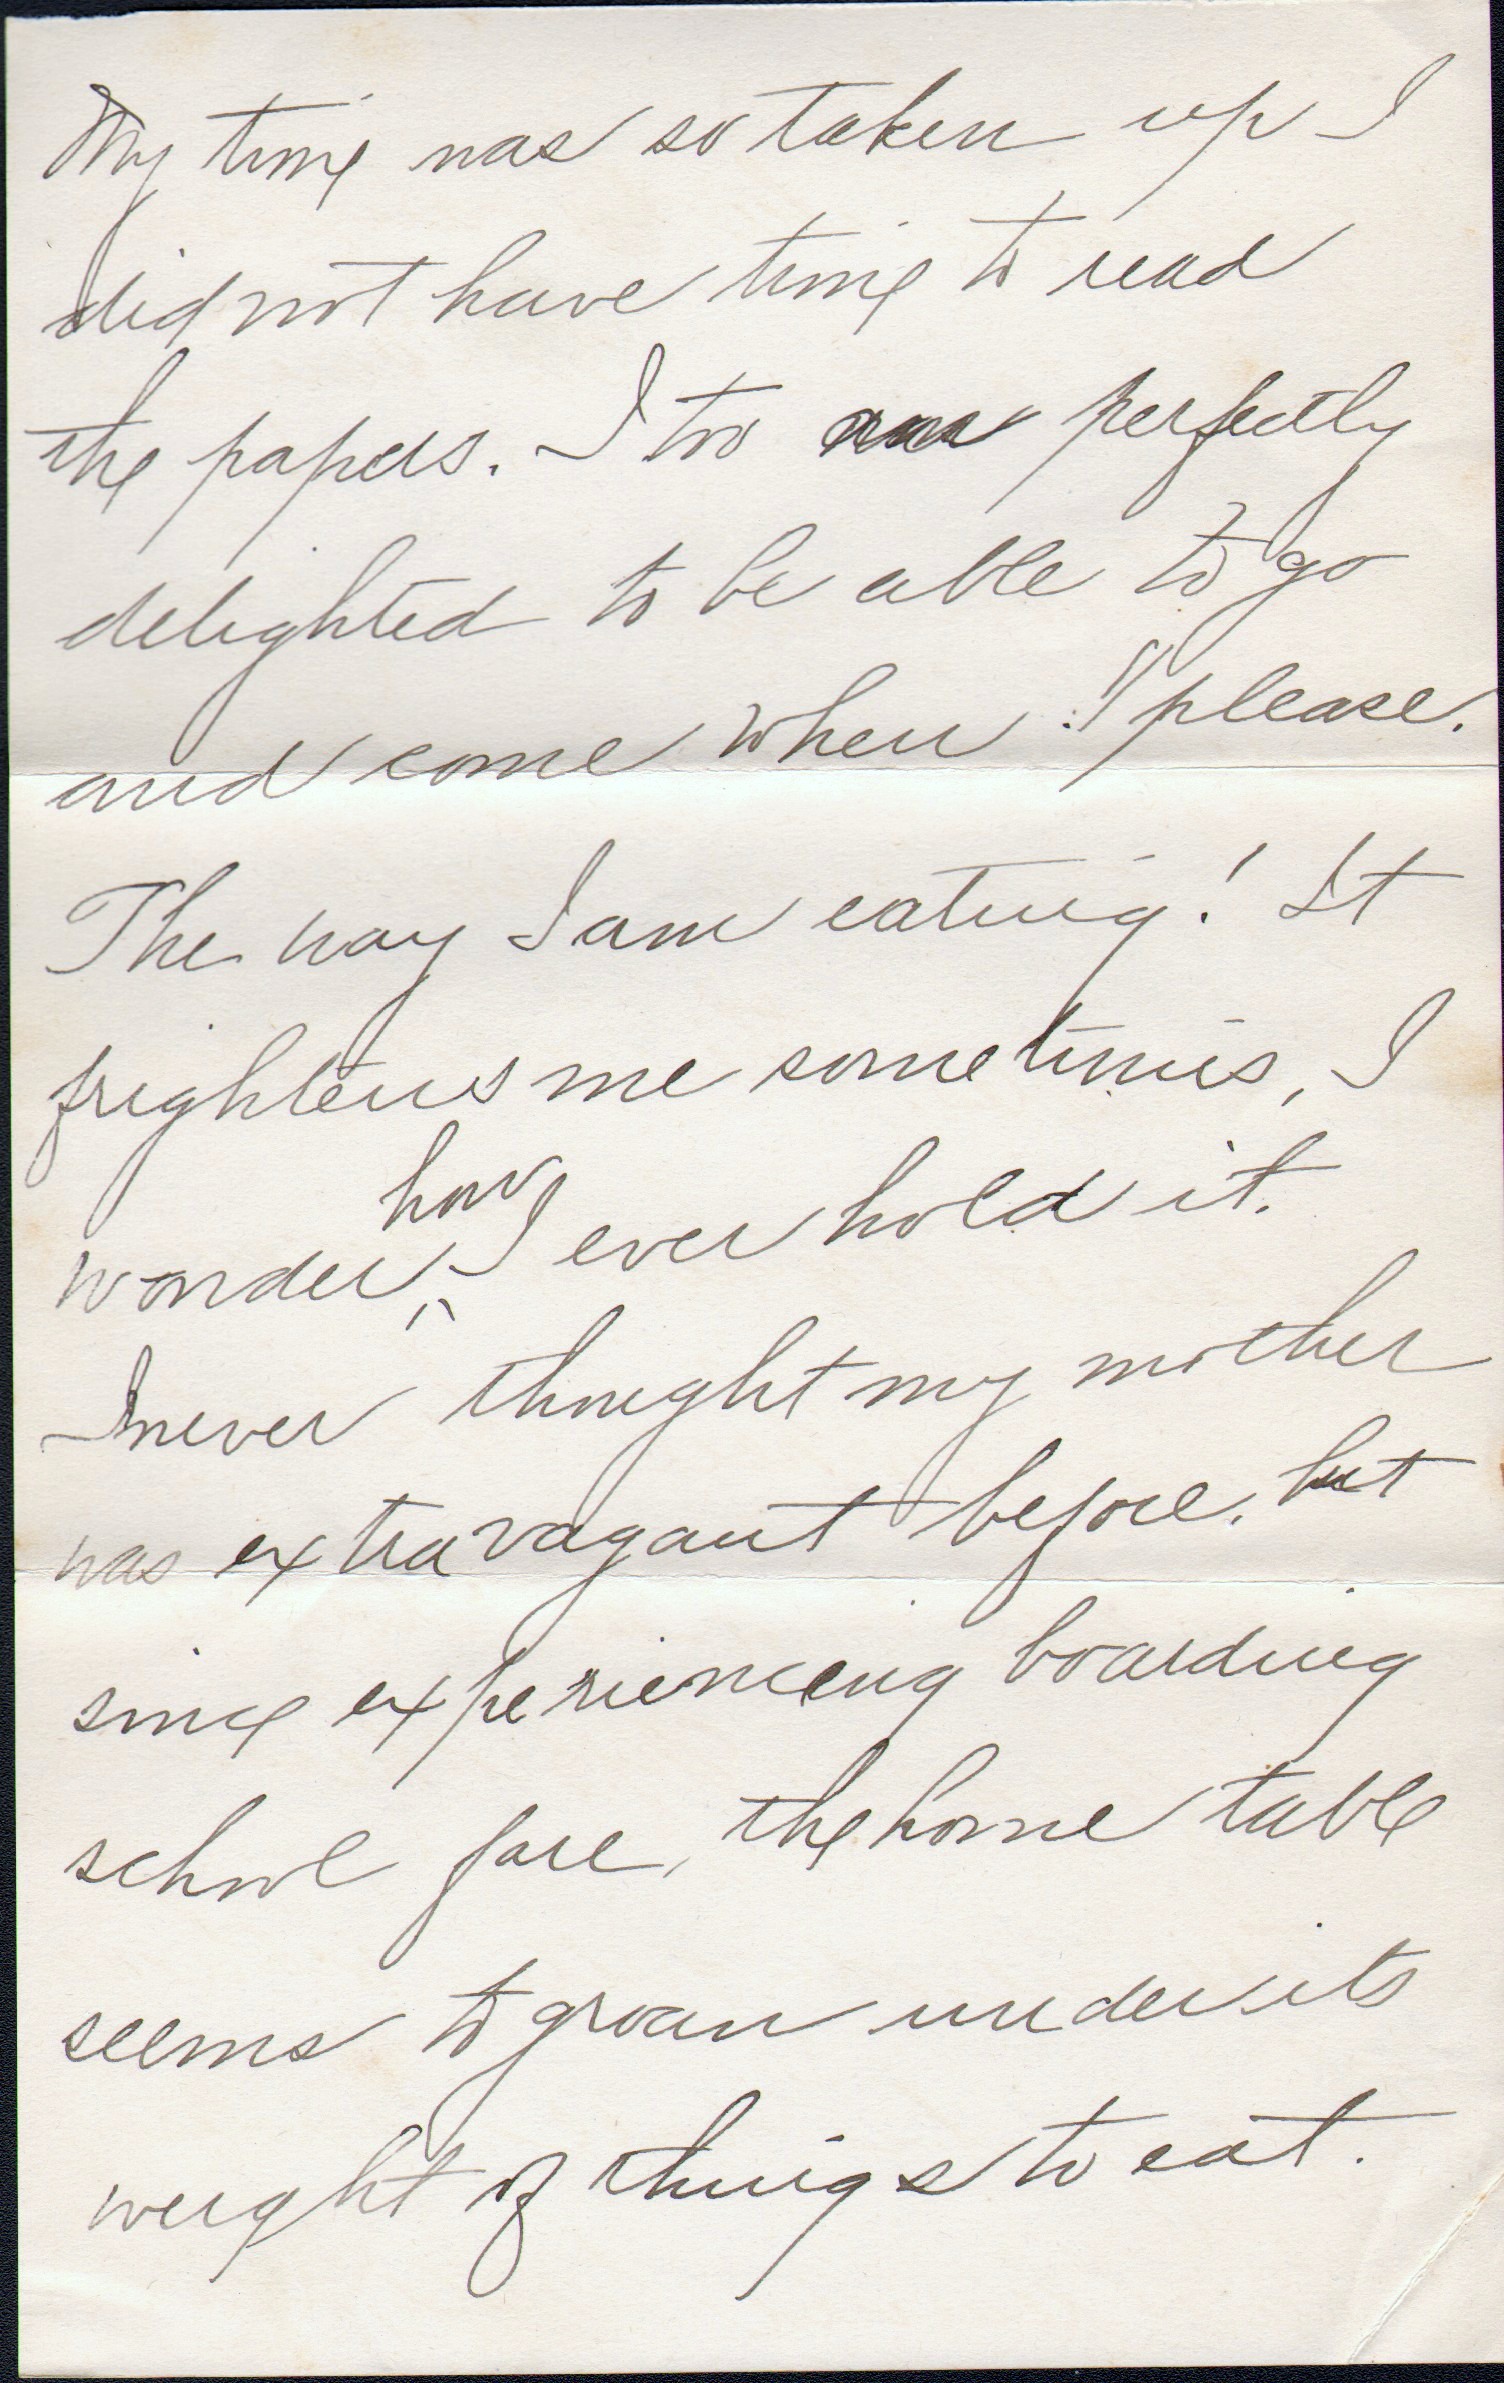 My time was so taken up I
did not have time to read
the papers. I too was perfectly
delighted to be able to go
and come when I please.
The way I am eating! It
frightens me sometimes, I
wonder, how I ever hold it.
I never thought my mother
was extravagant before, but
since experienceng boarding
school fare, the home table
seems to groan under its
weight of things to eat.